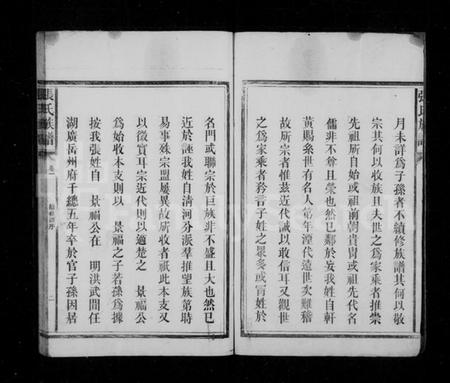 月未詳爲子孫者不續修族譜其何以敬
宗其何以收族且夫世之爲家乘者推崇
先祖所自始或祖前朝貴胄或祖先代名
儒非不眘且榮也然已鄰於妄我姓自軒
黃賜系世有名人第年湮代遠世次難稽
故所宗者惟茲近代誠以敢信耳又觀世
之爲家乘者矜言子姓之衆多或冐姓於
名門或聯宗於巨族非不盛且大也然已
近於誣我姓自清河分派羣推望族第時
易事殊宗盟屢異故所收者祇此本支又
以徵實耳宗近代則以適楚之 景福公
爲始收本支則以 景福之子若孫爲據
按我張姓自 景福公在 明洪武間任
湖廣岳州府千總五年卒於官子孫因居
張氏族譜
卷一
二
張氏族譜